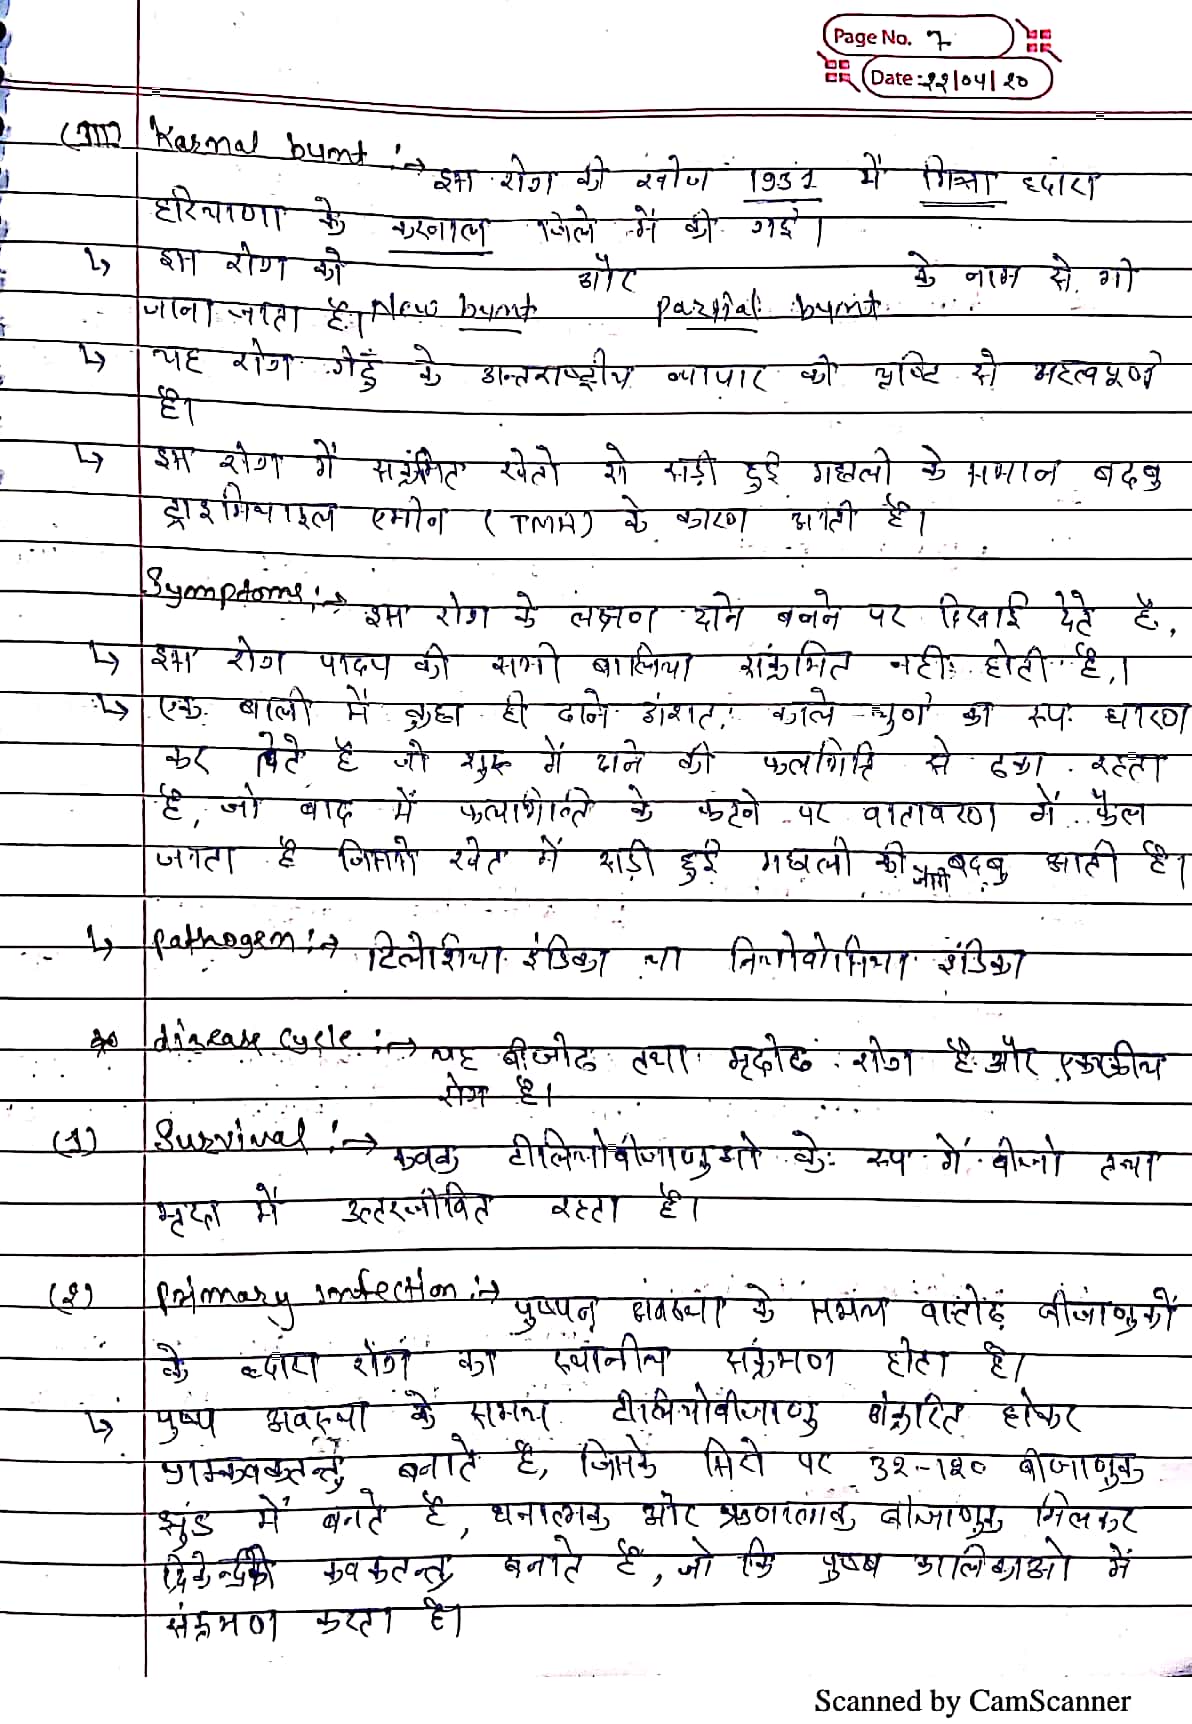 Page No. 7
Date :22/04/20
(III) Karnal bunt :→ इस रोग की खोज 1931 में मित्रा द्वारा
हरियाणा के करनाल जिले में की गई।
↳ इस रोग को New bunt और partial bunt के नाम से भी
जाना जाता है।
↳ यह रोग गेहुँ के अन्तराष्ट्रीय व्यापार की दृष्टि से महत्वपूर्ण
है।
↳ इस रोग में संक्रमित खेतो से सड़ी हुई मछली के समान बदबु
ट्राइमिथाइल एमीन (TMA) के कारण आती है।
Symptoms :→ इस रोग के लक्षण दाने बनने पर दिखाई देते है,
↳ इस रोग पादप की सभी बालिया संक्रमित नही होती है,।
↳ एक बाली में कुछ ही दाने अंशत: काले चुर्ण का रूप धारण
कर लेते है जो शुरू में दाने की फलभिति से ढका रहता
है, जो बाद में फलभित्ति के फटने पर वातावरण में फैल
जाता है जिससे खेत में सड़ी हुई मछली की जैसी बदबु आती है।
↳ pathogen :→ टिलेशिया इंडिका या नियोवोसिया इंडिका
disease cycle :→ यह बीजोढ तथा मृदोढ रोग है और एकचक्रीय
रोग है।
(1) Survival :→ कवक टीलियोबीजाणुओ के रूप में बीजो तथा
मृदा में उत्तरजीवित रहता है।
(2) primary infection :→ पुष्पन अवस्था के समय वातोढ़ बीजाणुकों
के द्वारा रोग का स्थानीय संक्रमण होता है।
↳ पुष्प अवस्था के समय टीलियोबीजाणु अंकुरित होकर
प्राक्कवकतन्तु बनाते है, जिसके सिरो पर 32-120 बीजाणुक
झुंड में बनते है, धनात्मक और ऋणात्मक बीजाणुक मिलकर
द्विकेन्द्रकी कवकतन्तु बनाते है, जो कि पुष्प कलिकाओ में
संक्रमण करता है।
Scanned by CamScanner